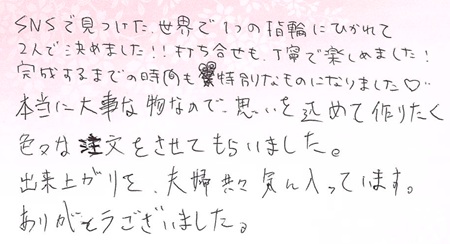 SNSで見つけた、世界で1つの指輪にひかれて
2人で決めました!!打ち合せも、丁寧で楽しめました!
完成するまでの時間も特別なものになりました♡
本当に大事な物なので、思いを込めて作りたく
色々な注文をさせてもらいました。
出来上がりを、夫婦共々気に入っています。
ありがとうございました。